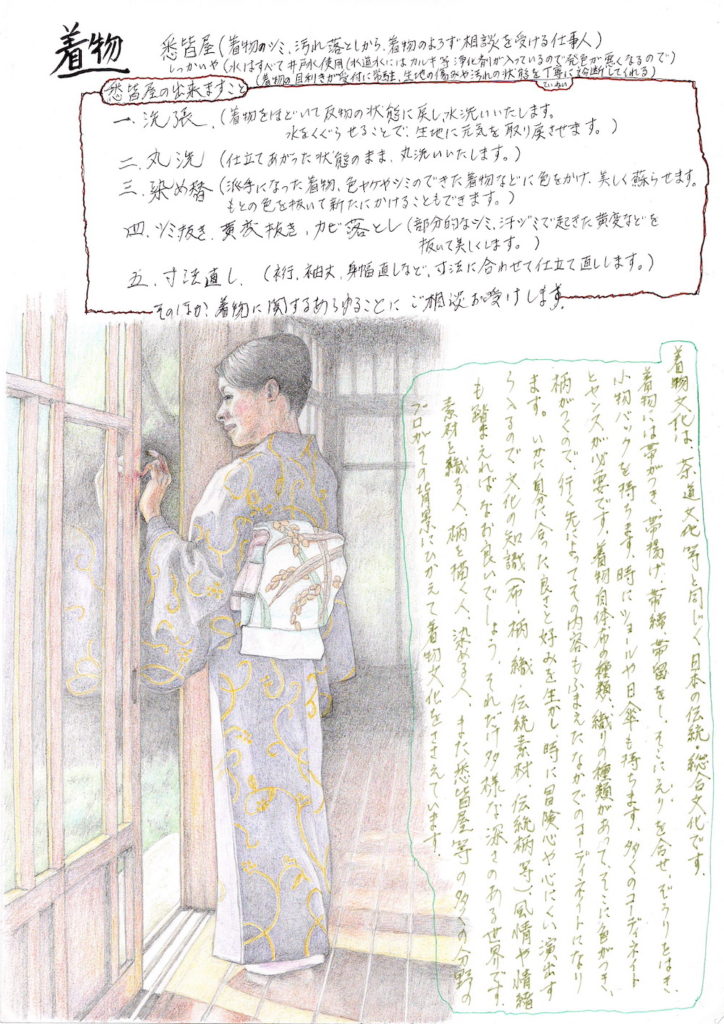 着物
悉皆屋(着物のシミ、汚れ落としから、着物のよろず相談を受ける仕事人)
しっかいや(水はすべて井戸水使用(水道水にはカルキ等浄化剤が入っているので発色が悪くなるので)
(着物の目利きが受付に常駐、生地の傷みや汚れの状態を丁寧に診断してくれる)
ていねい
悉皆屋の出来ますこと
一、洗張、(着物をほどいて反物の状態に戻し、水洗いいたします。
水をくぐらせることで、生地に元気を取り戻させます。)
二、丸洗(仕立てあがった状態のまま、丸洗いいたします。)
三、染め替(派手になった着物、色ヤケやシミのできた着物などに色をかけ、美しく蘇らせます。
もとの色を抜いて新たにかけることもできます。)
四、シミ抜き、黄変抜き、カビ落とし(部分的なシミ、汗ジミで起きた黄変などを
抜いて美しくします。)
五、寸法直し、(裄、袖丈、身幅直しなど、寸法に合わせて仕立て直しします。)
そのほか、着物に関するあらゆることにご相談お受けします。
着物文化は、茶道文化等と同じく日本の伝統・総合文化です。
着物には帯がつき、帯揚げ、帯締、帯留をし、そこにえりを合せ、ぞうりをはき、
小物バックを持ちます。時にショールや日傘も持ちます。多くのコーディネイト
とセンスが必要です。着物自体、布の種類、織りの種類があって、そこに色がつき、
柄がつくので、行く先によってその内容もふまえたなかでのコーディネイトになり
ます。いかに自分に合った良さと好みを生かし、時に冒険心や心にくい演出す
ら入るので、文化の知識(布・柄・織・伝統素材、伝統柄等)、風情や情緒
も踏まえればなお良いでしょう。それだけ多様な深さのある世界です。
素材を織る人、柄を描く人、染める人、また悉皆屋等の多くの分野の
プロがその背景にひかえて着物文化をささえています。